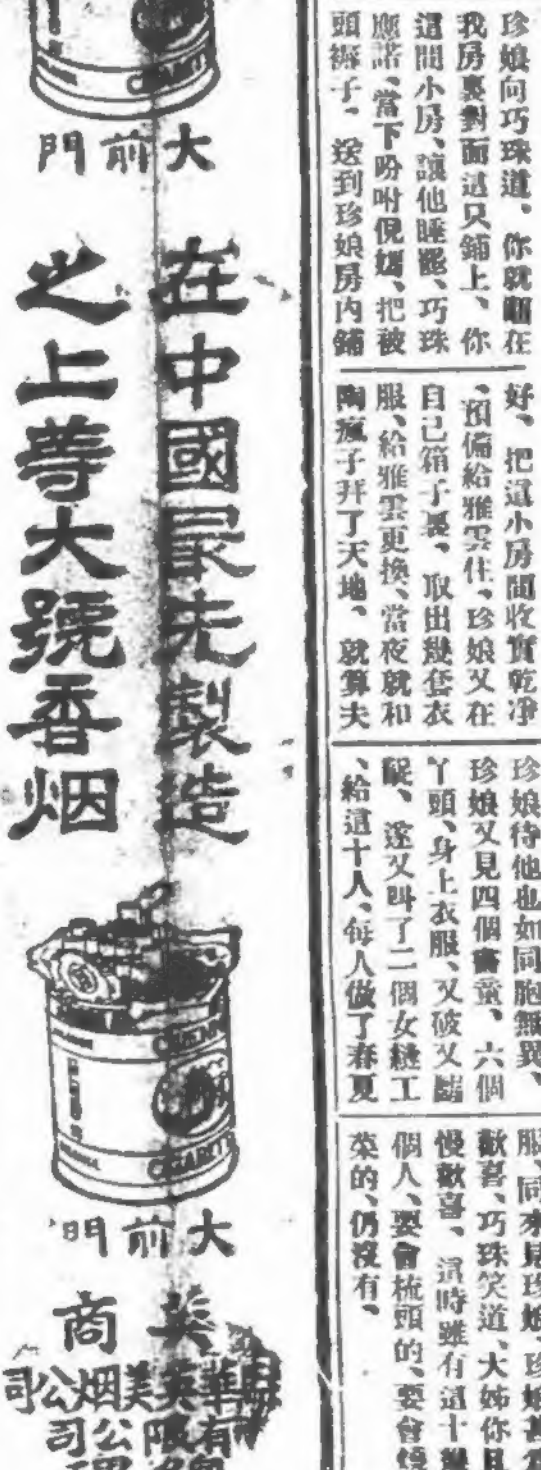 珍娘向巧珠道、你就睏在
我房裏對面這只鋪上、你
這間小房、讓他睡罷、巧珠
應諾、當下吩咐倪媽、把被
頭褥子、送到珍娘房內鋪
好、把這小房間收實乾净
、預備給雅雲住、珍娘又在
自己箱子裏、取出幾套衣
服、給雅雲更換、當夜就和
陶瘋子拜了天地、就算夫
珍娘待他也如同胞無異、
珍娘又見四個書童、六個
丫頭、身上衣服、又破又齷
齪、遂又叫了二個女縫工
、給這十人、每人做了春夏
服、同來見珍娘、珍娘甚為
歡喜、巧珠笑道、大姊你且
慢歡喜、這時雖有這十幾
個人、要會梳頭的、要會燒
菜的、仍沒有、
大前門
在中國最先製造
之上等大號香烟
CIGARETTE
大前門
英商
駐華英美烟公司
有限公司